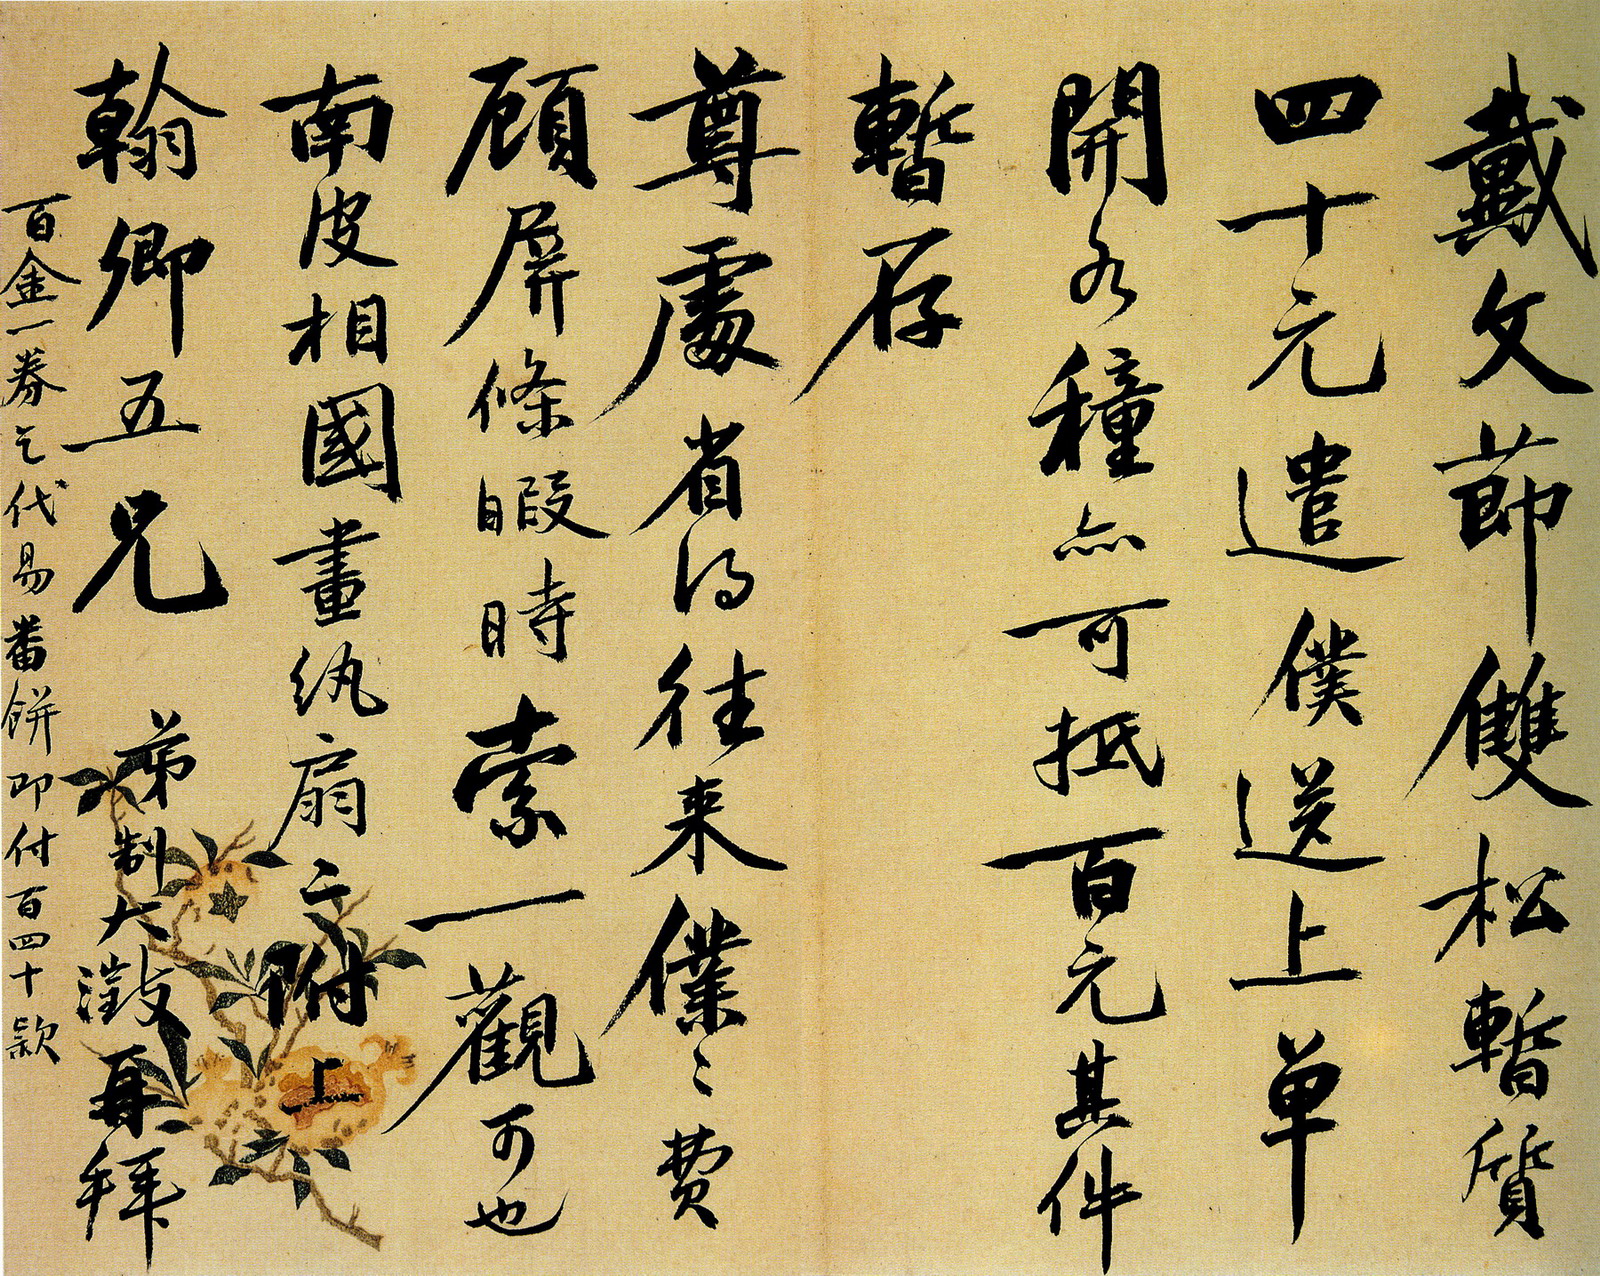 戴文節雙松暫質
四十元遣僕送上单
開各種亦可抵百元其件
暫存
尊處省得往来僕僕之費
顧屏條暇時索一觀可也
南皮相國畫纨扇二附上
翰卿五兄 弟制大澂再拜
百金一券乞代易番餅即付百四十款